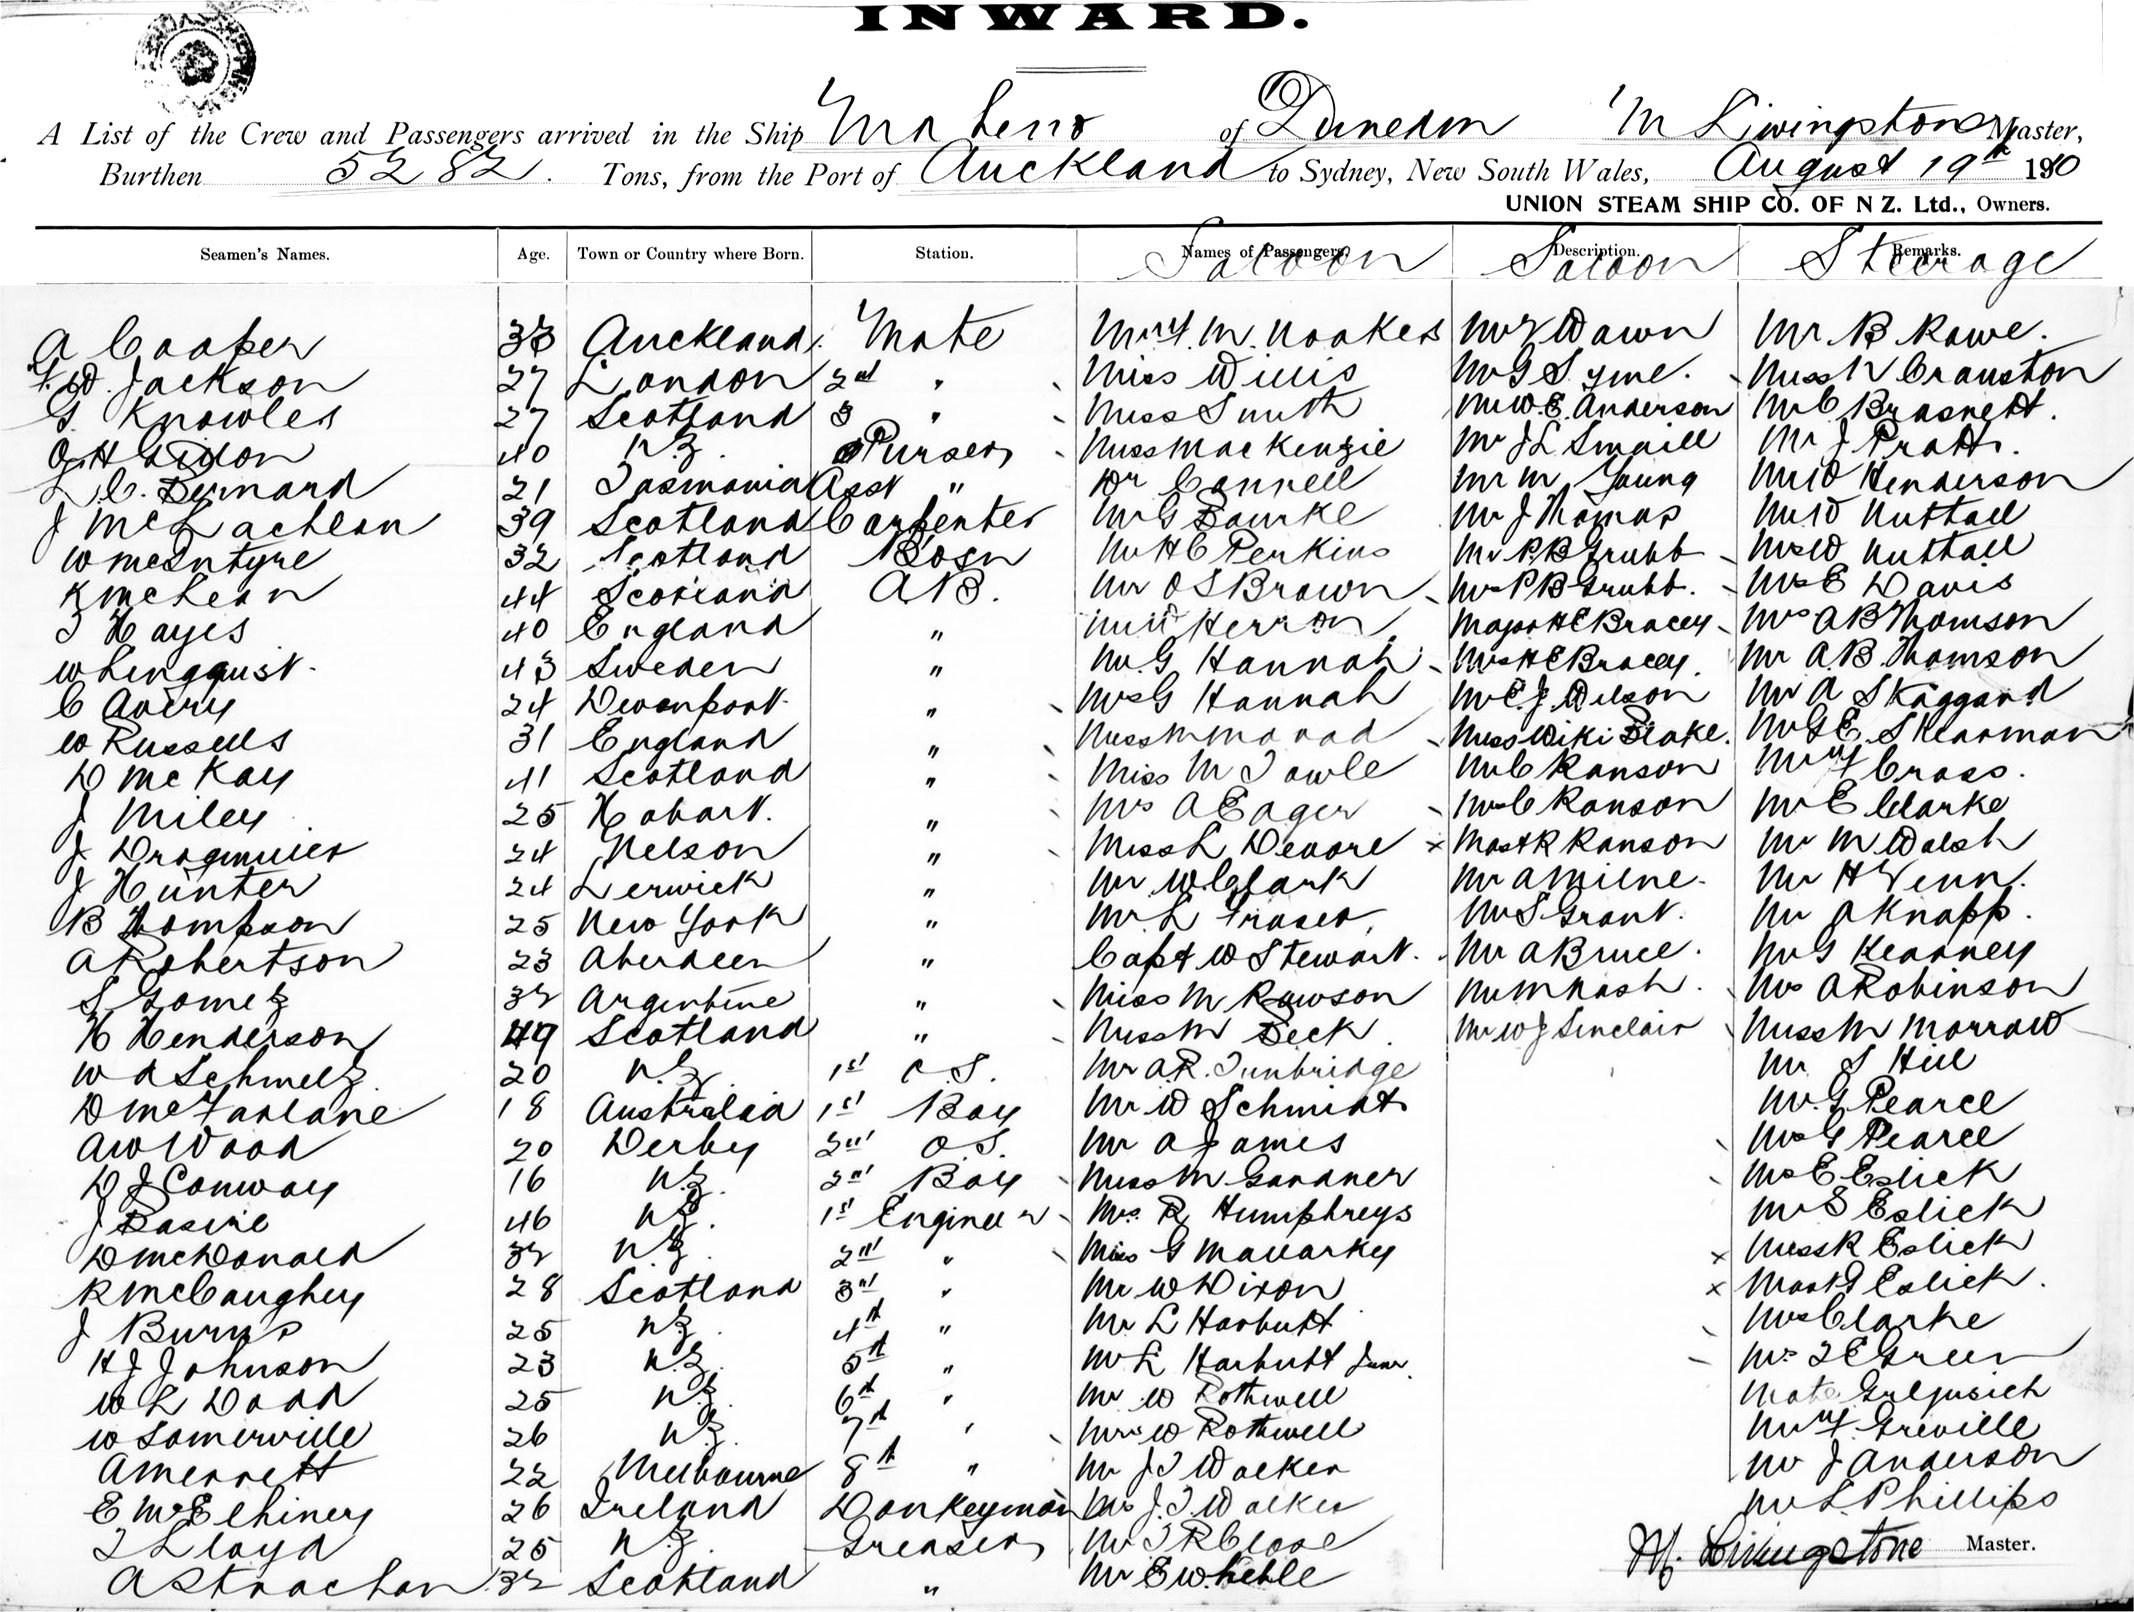 INWARD.
A List of the Crew and Passengers arrived in the Ship Maheno of Dunedin M Livingstone Master,
Burthen 5282. Tons, from the Port of Auckland to Sydney, New South Wales, August 19th 1910
UNION STEAM SHIP CO. OF N Z. Ltd., Owners.
Seamen's Names. Age. Town or Country where Born. Station. Names of Passengers. Saloon Description. Saloon Remarks. Steerage
A Cooper 33 Auckland Mate M. Noakes Mr Dawn Mr B Rowe.
Jackson 27 London 2nd " Miss Willis Mr G Syme. Miss N Cranston
G Knowles 27 Scotland 3 " Miss Smith Mr W.E. Anderson Mr C Brasnett.
40 N.Z. Purser Miss MacKenzie Mr J L Smaill Mr J Pratt.
L.C. Bernard 21 Tasmania Asst " Dr Connell Mr M Young Mr W Henderson
J McLachlan 39 Scotland Carpenter Mr G Bourke Mr J Thomas Mr W Nuttall
W McIntyre 32 Scotland Bosn Mr H C Perkins Mr P.B Grubb Mrs W Nuttall
K McLean 44 Scotland A.B. Mr O S Brown Mrs P B Grubb. Mrs E Davis
T Hayes 40 England " Mr W Herron Major H E Bracey Mrs A B Thomson
W Lingquist. 43 Sweden " Mr G Hannah Mrs H E Bracey. Mr A.B. Thomson
C Avery 24 Devonport. " Mrs G Hannah Mr E.J. Wilson Mr A Skaggard
W Russells 31 England " Miss M Miss Wiki Blake. Mr G E Skearman
D McKay 41 Scotland " Miss M Towle Mr C Ranson Cross.
J Miley 25 Hobart. " Mrs A Eager Mrs C Ranson Mr E Clarke
J 24 Nelson " Miss L Devore Mast R Ranson Mr M Walsh
J Hunter 24 Lerwick " Mr W. Clark Mr A Milne. Mr H Venn.
B Thompson 25 New York " Mr L Fraser Mr S Grant. Mr A Knapp.
A Robertson 23 Aberdeen " Capt W Stewart. Mr A Bruce. Mr G Kearney
S Gomez 32 Argentine " Miss M Rawson Mr M Nash. Mrs A Robinson
H Henderson 49 Scotland " Miss M Beck Mr W J Sinclair Miss M Morrow
W A Schmelz 20 N.Z. 1st O.S. Mr A.R. Tunbridge Mr S Hill
D McFarlane 18 Australia 1st Boy Mr W Schmidt Mr. G Pearce
A W Wood 20 Derby 2nd O.S. Mr A James Mrs G Pearce
D J Conway 16 N.Z. 2nd Boy Miss M Gardner Mrs E Eslick
J Basire 46 N.Z. 1st Engineer Mrs. R Humphreys Mr S Eslick
D McDonald 32 N.Z. 2nd " Miss G Mavarky Miss R Eslick
R McCaughey 28 Scotland 3rd " Mr W Dixon Mast G Eslick.
J Burns 25 N.Z. 4th " Mr L Harbutt Mrs Clarke
H J Johnson 23 N.Z. 5th " Mr L Harbutt Junr. Mrs T E Green
W L Dodd 25 N.Z. 6th " Mr W Rothwell Mate
W Somerville 26 N.Z. 7th " Mrs W Rothwell Greville
A Merrett 22 Melbourne 8th " Mr J T Walker Mr J Anderson
E McElhiney 26 Ireland Donkeyman Mrs J.T. Walker Mr L Phillips
T Lloyd 25 N.Z. Greaser Mr T R Close M. Livingstone Master.
A Strachan 32 Scotland " Mr E W. Keble